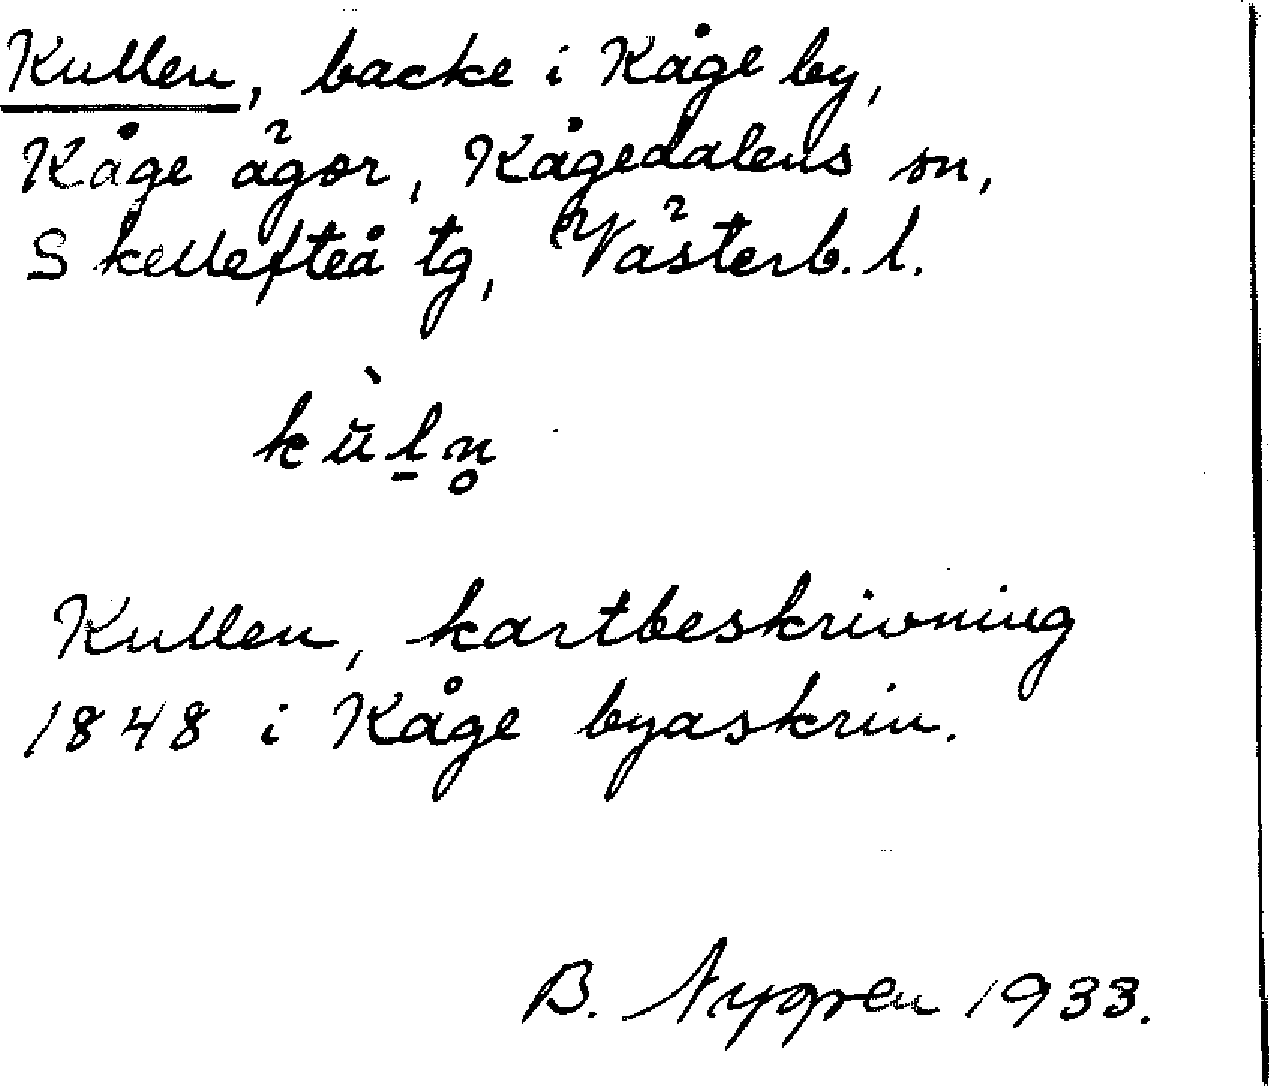 Kullen, backe i Kåge by,
Kåge ägor, Kågedalens sn,
Skellefteå tg, Västerb. l.
kùl̠n̥
Kullen, kartbeskrivning
1848 i Kåge byaskrin.
B. Nygren 1933.